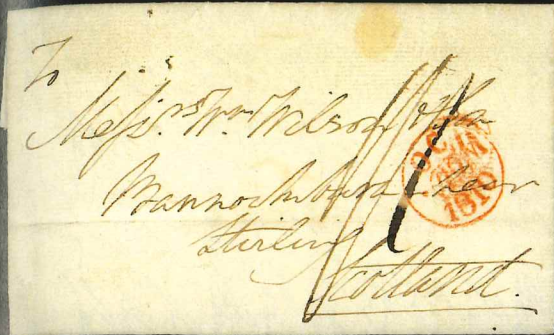 To
Messrs. Wm Wilson & Son
Bannockburn near
Stirling
Scotland.
OC
1810